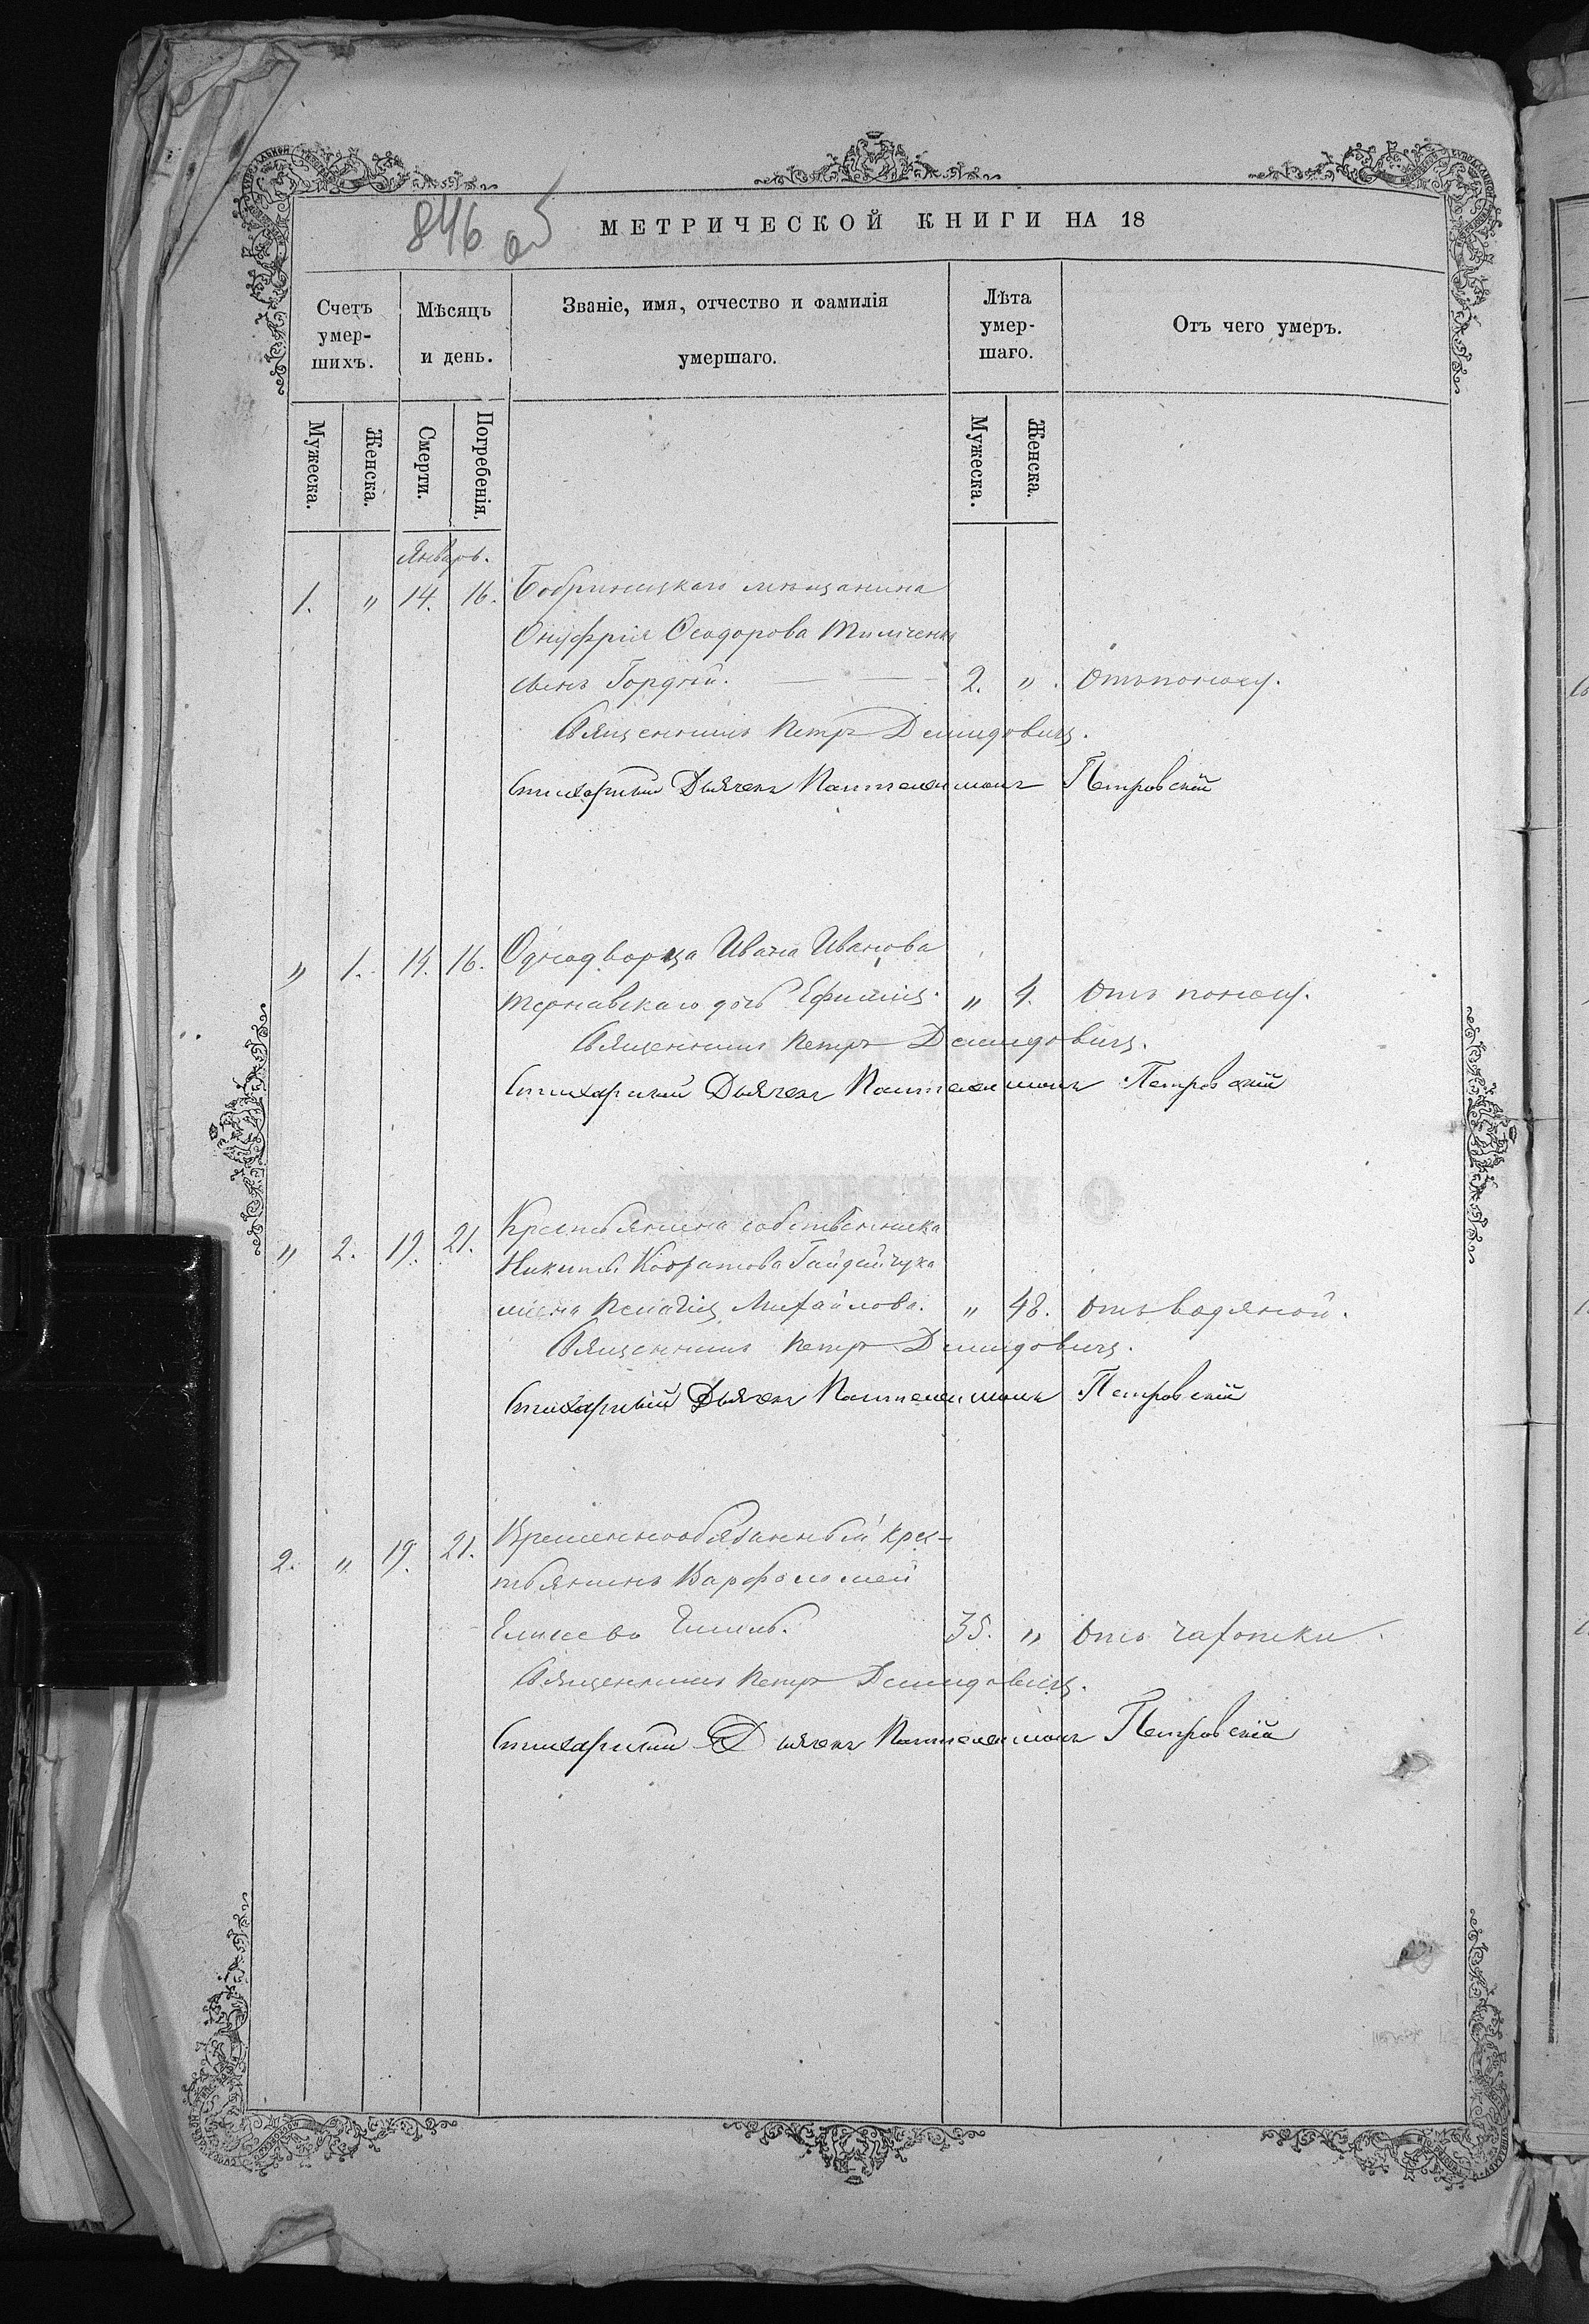 846 об
МЕТРИЧЕСКОЙ КНИГИ НА 18
Счетъ умер-шихъ. Мѣсяцъ и день. Званіе, имя, отчество и фамилія умершаго. Лѣта умер-шаго. Отъ чего умеръ.
Мужеска. Женска. Смерти. Погребенія. Мужеска. Женска.
Январь.
1. " 14. 16. Бобринецкаго мѣщанина
Онуфрія Ѳеодорова
сынъ Гордѣй. 2. " Отъ поносу.
Священникъ Петръ Демидовичъ.
Стихарный Дьячекъ Пантелеимонъ Петровскій
" 1. 14. 16. Однодворца Ивана Иванова
Тернавскаго дочь Ефимія. " 4. Отъ поносу.
Священникъ Петръ Демидовичъ.
Стихарный Дьячекъ Пантелеимонъ Петровскій
" 2. 19. 21. Крестьянина собственника
Никиты Кодратова Гайдайчука
жена Пелагія Михайлова. " 48. Отъ водяной.
Священникъ Петръ Демидовичъ.
Стихарный Дьячекъ Пантелеимонъ Петровскій
2. " 19. 21. Временнообязанный крес-
тьянинъ Варфоломей
35. " Отъ чахотки.
Священникъ Петръ Демидовичъ.
Стихарный Дьячекъ Пантелеимонъ Петровскій